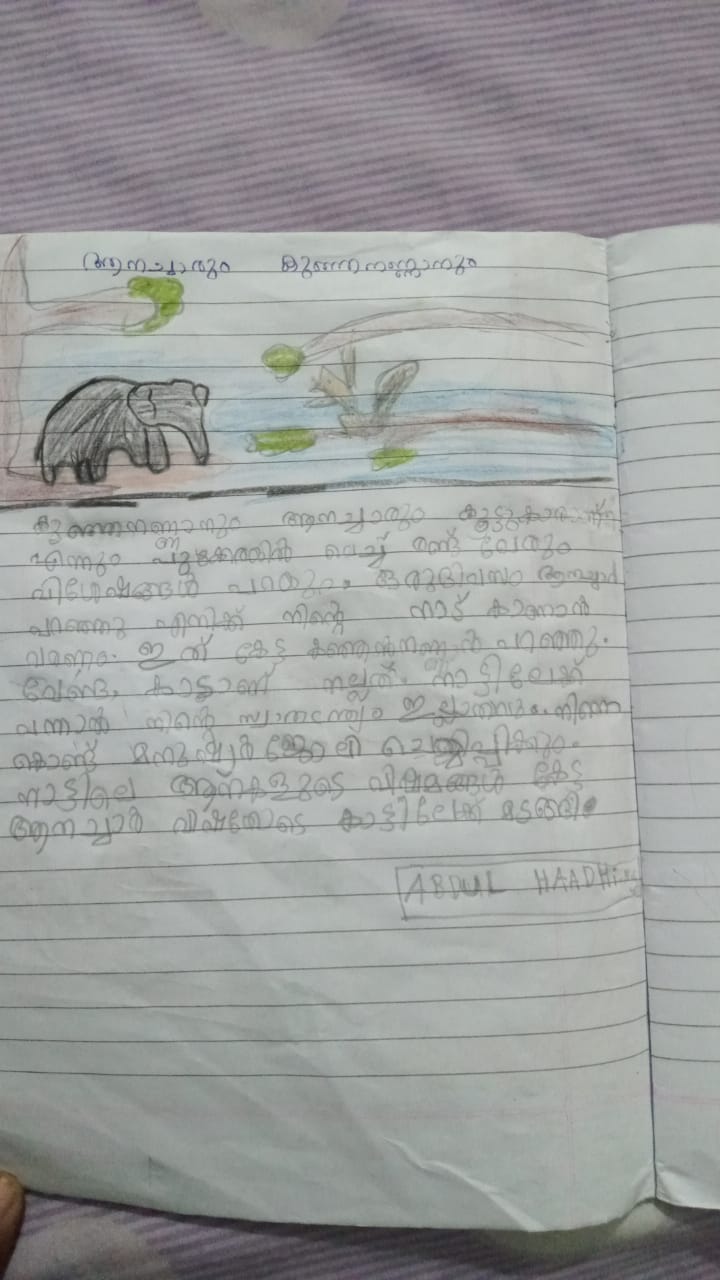 ആനച്ചാരും കുഞ്ഞനണ്ണാനും
കുഞ്ഞനണ്ണാനും ആനച്ചാരും കൂട്ടുകാരാണ്
എന്നും വെച്ച് രണ്ട് പേരും
വിശേഷങ്ങൾ പറയും. ഒരുദിവസം ആനച്ചാർ
പറഞ്ഞു എനിക്ക് നിന്റെ നാട് കാണാൻ
വരണം. ഇത് കേട്ട കുഞ്ഞനണ്ണാൻ പറഞ്ഞു.
വേണ്ട, കാടാണ് നല്ലത്. നാട്ടിലേക്ക്
വന്നാൽ നിന്റെ സ്വാതന്ത്ര്യം ഇല്ലാതാവും. നിന്നെ
കൊണ്ട് മനുഷ്യർ ജോലി ചെയ്യിപ്പിക്കും.
നാട്ടിലെ ആനകളുടെ വിഷമങ്ങൾ കേട്ട
ആനച്ചാർ കാട്ടിലേക്ക് മടങ്ങി.
ABDUL